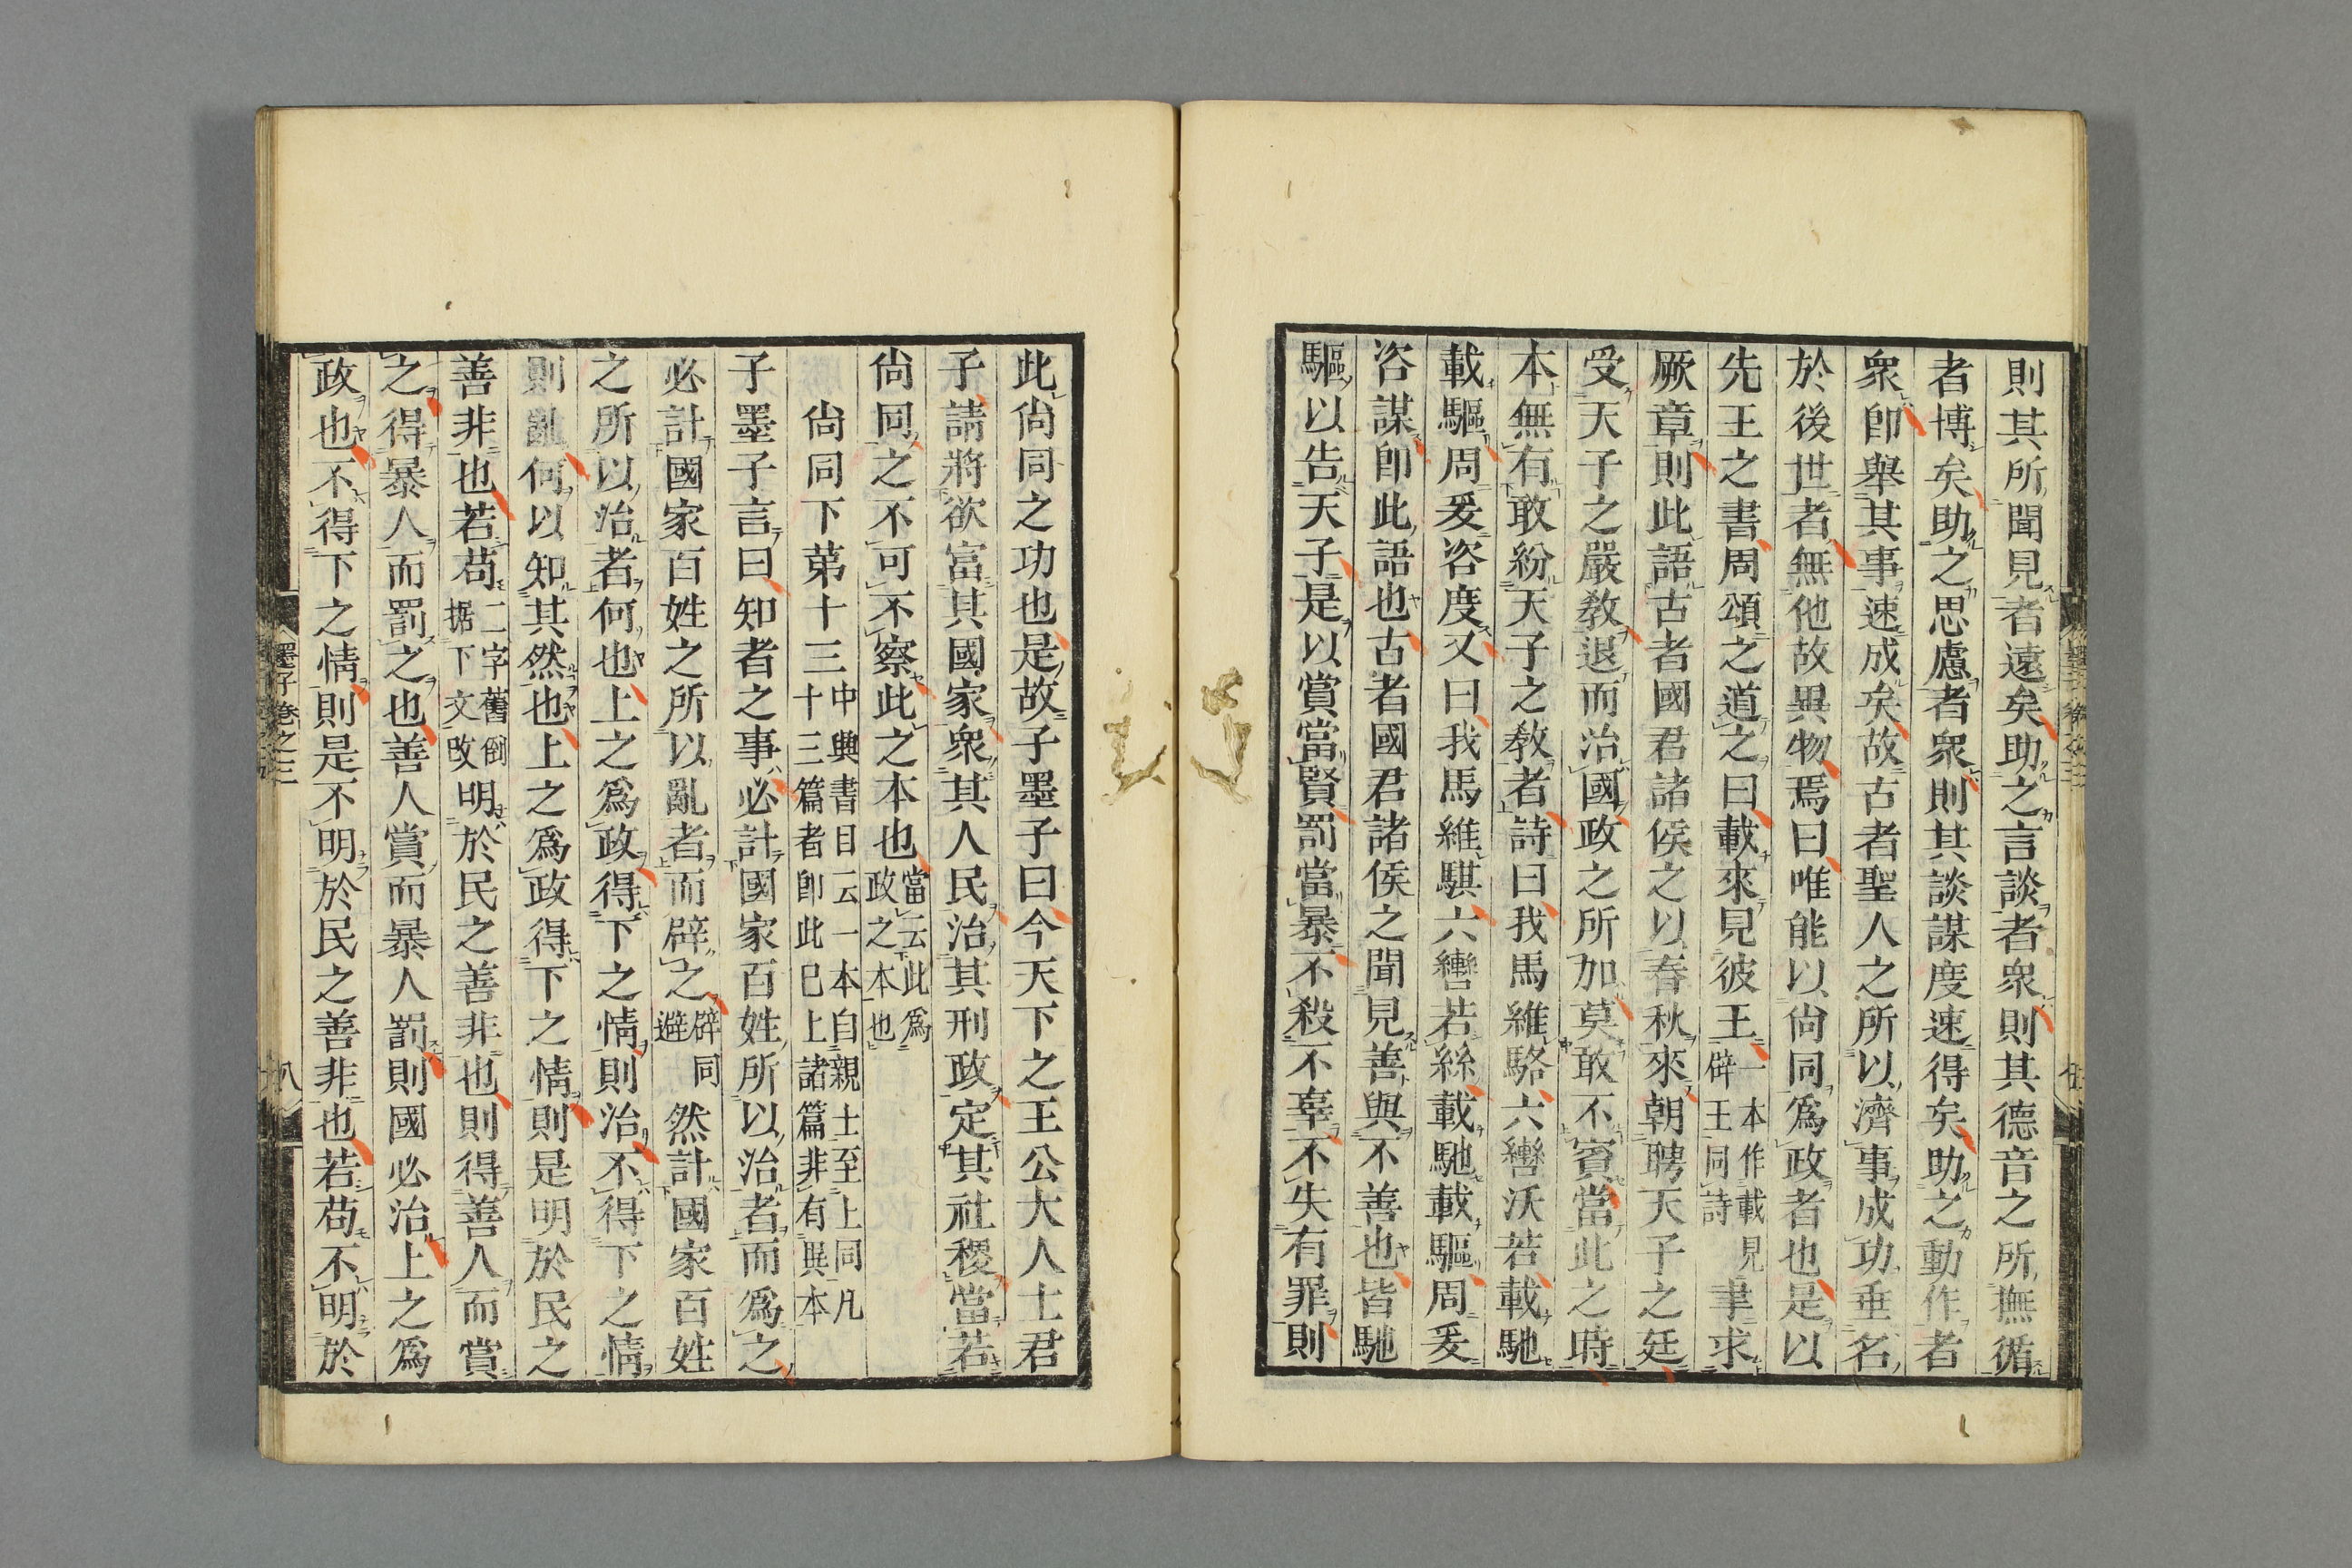 則其所聞見者遠矣助之言談者衆則其德音之所撫循
者博矣助之思慮者衆則其談謀度速得矣助之動作者
衆卽舉其事速成矣故古者聖人之所以濟事成功垂名
於後世者無他故異物焉曰唯能以尙同爲政者也是以
先王之書周頌之道之曰載來見彼王一本作載見辟王同詩聿求
厥章則此語古者國君諸侯之以春秋來朝聘天子之廷
受天子之嚴敎退而治國政之所加莫敢不賓當此之時
本無有敢紛天子之敎者詩曰我馬維駱六轡沃若載馳
載驅周爰咨度又曰我馬維騏六轡若絲載馳載驅周爰
咨謀卽此語也古者國君諸侯之聞見善與不善也皆馳
驅以告天子是以賞當賢罰當暴不殺不辜不失有罪則
此尙同之功也是故子墨子曰今天下之王公大人士君
子請將欲富其國家衆其人民治其刑政定其社稷當若
尙同之不可不察此之本也當云此爲政之本也
尙同下第十三中興書目云一本自親士至上同凡十三篇者卽此已上諸篇非有異本
子墨子言曰知者之事必計國家百姓所以治者而爲之
必計國家百姓之所以亂者而辟之辟同避然計國家百姓
之所以治者何也上之爲政得下之情則治不得下之情
則亂何以知其然也上之爲政得下之情則是明於民之
善非也若苟二字舊倒据下文改明於民之善非也則得善人而賞
之得暴人而罰之也善人賞而暴人罰則國必治上之爲
政也不得下之情則是不明於民之善非也若苟不明於
墨子卷之三
八